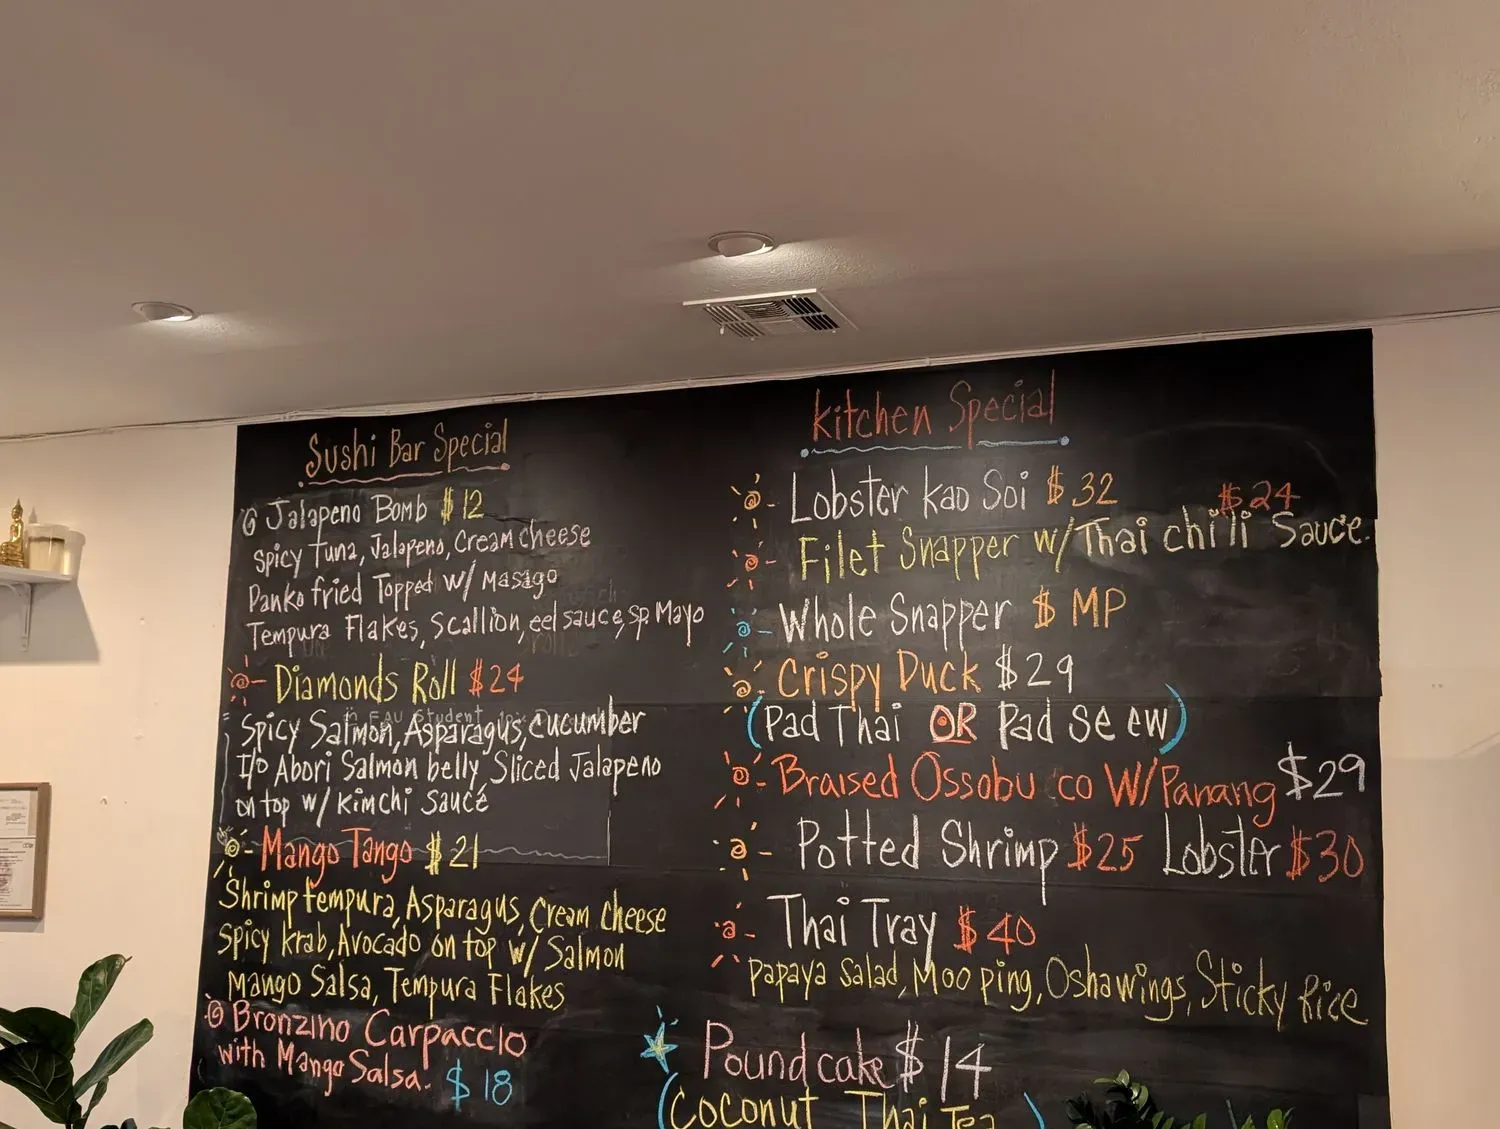 Sushi Bar Special
Jalapeno Bomb $12
Spicy tuna, Jalapeno, Cream cheese
Panko fried Topped w/ Masago
Tempura Flakes, Scallion, eel sauce, sp. Mayo
Diamonds Roll $24
Spicy Salmon, Asparagus, cucumber
I/o Abori Salmon belly, Sliced Jalapeno
on top w/ Kimchi Sauce
Mango Tango $21
Shrimp tempura, Asparagus, Cream cheese
Spicy krab, Avocado on top w/ Salmon
Mango Salsa, Tempura Flakes
Bronzino Carpaccio
with Mango Salsa. $18
Kitchen Special
Lobster Kao Soi $32
$24
Filet Snapper w/Thai chili Sauce.
Whole Snapper $ MP
Crispy Duck $29
(Pad Thai OR Pad se ew)
Braised Ossobu co W/Panang $29
Potted Shrimp $25 Lobster $30
Thai Tray $40
Papaya Salad, Moo ping, Osha wings, Sticky Rice
Pound cake $14
(Coconut Thai Tea)